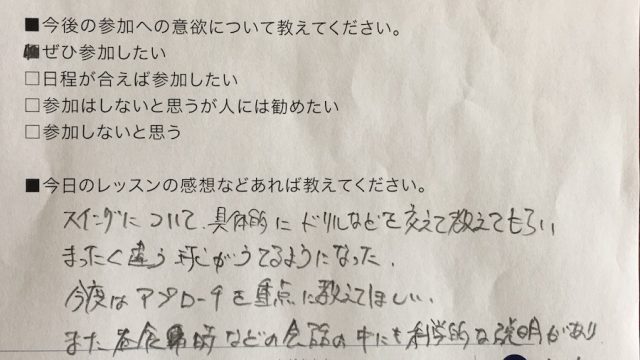 ■今後の参加への意欲について教えてください。
■ぜひ参加したい
□日程が合えば参加したい
□参加はしないと思うが人には勧めたい
□参加しないと思う
■今日のレッスンの感想などあれば教えてください。
スイングについて、具体的にドリルなどを交えて教えてもらい
まったく違う球がうてるようになった。
今度はアプローチを重点に教えてほしい。
また昼食時などの会話の中にも科学的な説明があり